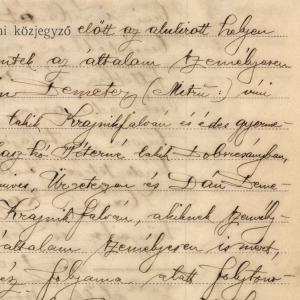 ni közjegyző előtt az alulirott helyen
ntek az általam személyesen
Demeter (Mitru:)
lakik Krajnikfalván és édes gyerme-
Péterné lakik Dobricsányban,
Ürgetegen és Dán Deme-
Krajnikfalvan, akiknek személy-
általam személyesen is mert,
folyama alatt folytono-